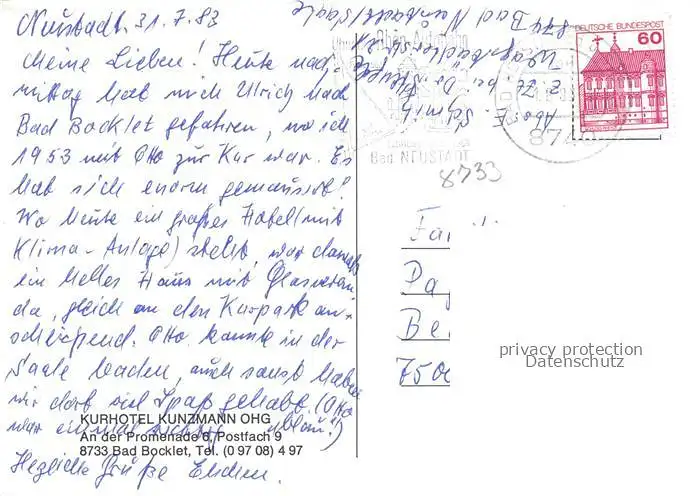 Neustadt, 31.7.83
Meine Lieben! Heute nach-
mittag hat mich Ulrich nach
Bad Bocklet gefahren, wo ich
1953 mit Otto zur Kur war. Es
hat sich enorm gemausert!
Wo heute ein großes Hotel (mit
Klima-Anlage) steht, war damals
ein helles Haus mit Glasveran-
da, gleich an den Kurpark an-
schließend. Otto konnte in der
Saale baden, auch sonst haben
wir dort viel Spaß gehabt. (Otto
war einmal richtig blau!)
Herzliche Grüße
KURHOTEL KUNZMANN OHG
An der Promenade 6, Postfach 9
8733 Bad Bocklet, Tel. (0 97 08) 4 97
Abs. E. Schmitz
z. Zt. bei Dr.
874 Bad Neustadt/Saale
DEUTSCHE BUNDESPOST
60
Bad NEUSTADT
8740
8733
Fa
Pa
Be
750
privacy protection
Datenschutz